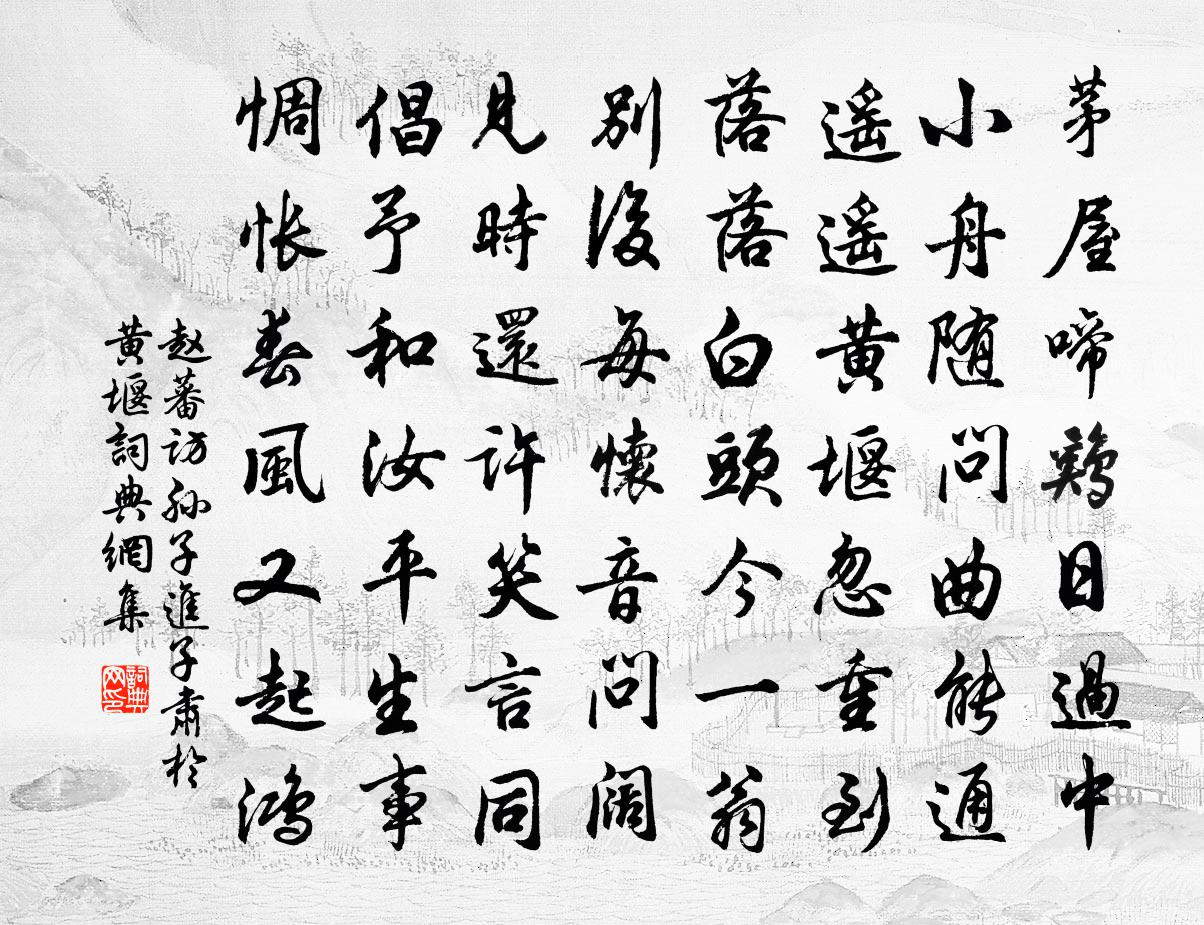 茅屋啼鷄日過中
小舟随問曲能通
遥遥黄堰忽重到
落落白頭今一翁
別後每懷音問闊
見時還許笑言同
倡予和汝平生事
惆悵春風又起鴻
赵蕃访孙子進子肅於
黄堰詞典網集
詞典网印